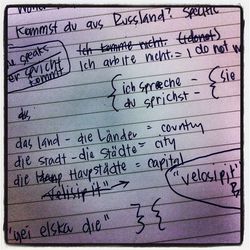 Kommst du aus Russland?
du speaks
er spricht
kommt
Ich komme nicht. (I do not)
Ich arbite nicht. = I do not
ich spreche - sie
du sprichst -
das
das land - die Länder = country
die stadt - die Städte = city
die Haupstädte = capital
"velosipit"
Velisipit
"yei elska die"